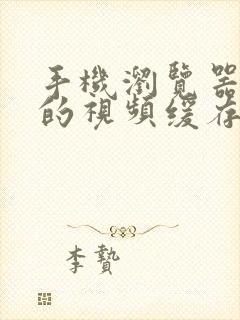 手機瀏覽器
的視頻緩存
李贄